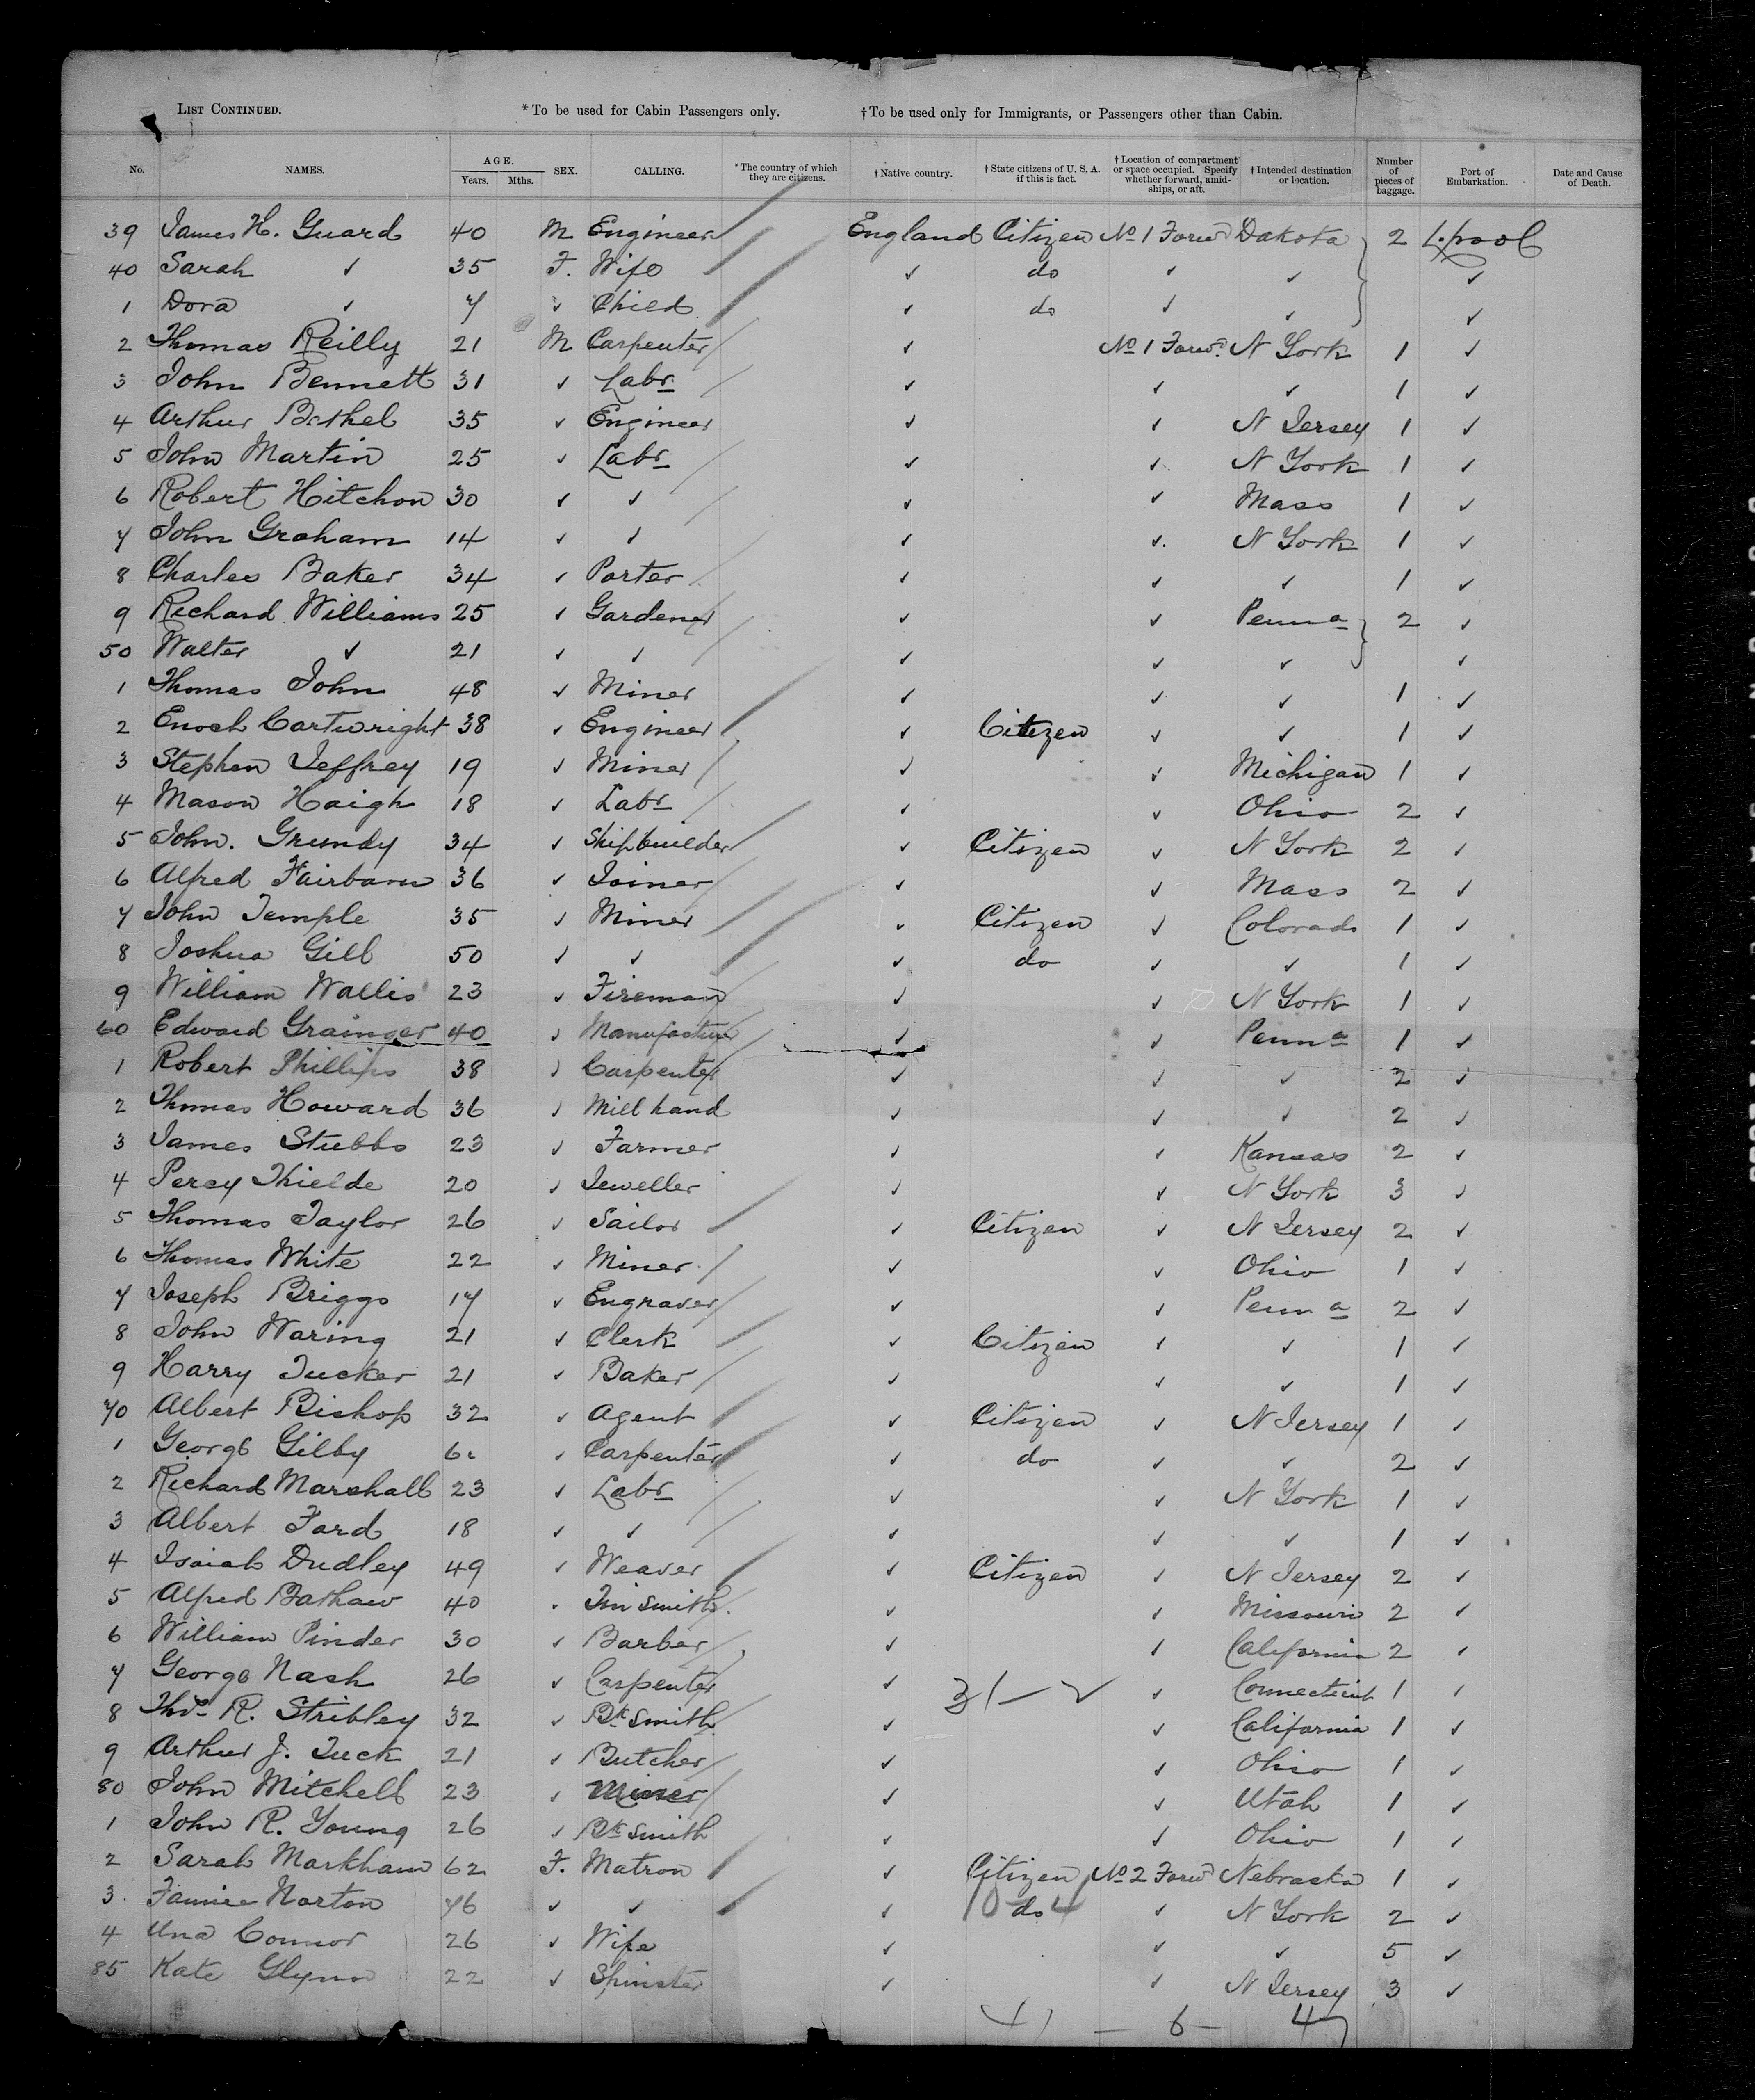 LIST CONTINUED. *To be used for Cabin Passengers only. †To be used only for Immigrants, or Passengers other than Cabin.
No. NAMES. AGE. Years. Mths. SEX. CALLING. *The country of which they are citizens. †Native country. †State citizens of U. S. A. if this is fact. †Location of compartment or space occupied. Specify whether forward, amidships, or aft. †Intended destination or location. Number of pieces of baggage. Port of Embarkation. Date and Cause of Death.
39 James H. Guard 40 M Engineer England Citizen No 1 Forwd Dakota 2 L.pool
40 Sarah ✓ 35 F. Wife ✓ do ✓ ✓ ✓
1 Dora ✓ 7 ✓ Child ✓ do ✓ ✓ ✓
2 Thomas Reilly 21 M Carpenter ✓ No 1 Forwd. N York 1 ✓
3 John Bennett 31 ✓ Labr ✓ ✓ ✓ 1 ✓
4 Arthur Bethel 35 ✓ Engineer ✓ ✓ N Jersey 1 ✓
5 John Martin 25 ✓ Labr ✓ ✓ N York 1 ✓
6 Robert Hitchon 30 ✓ ✓ ✓ ✓ Mass 1 ✓
7 John Graham 14 ✓ ✓ ✓ ✓ N York 1 ✓
8 Charles Baker 34 ✓ Porter ✓ ✓ ✓ 1 ✓
9 Richard Williams 25 ✓ Gardener ✓ ✓ Penna 2 ✓
50 Walter ✓ 21 ✓ ✓ ✓ ✓ ✓ ✓
1 Thomas John 48 ✓ Miner ✓ ✓ ✓ 1 ✓
2 Enoch Cartwright 38 ✓ Engineer ✓ Citizen ✓ ✓ 1 ✓
3 Stephen Jeffrey 19 ✓ Miner ✓ ✓ Michigan 1 ✓
4 Mason Haigh 18 ✓ Labr ✓ ✓ Ohio 2 ✓
5 John. Grundy 34 ✓ Shipbuilder ✓ Citizen ✓ N York 2 ✓
6 Alfred Fairbarn 36 ✓ Joiner ✓ ✓ Mass 2 ✓
7 John Temple 35 ✓ Miner ✓ Citizen ✓ Colorado 1 ✓
8 Joshua Gill 50 ✓ ✓ ✓ do ✓ ✓ 1 ✓
9 William Wallis 23 ✓ Fireman ✓ ✓ N York 1 ✓
60 Edward Grainger 40 ✓ Manufacturer ✓ ✓ Penna 1 ✓
1 Robert Phillips 38 ✓ Carpenter ✓ ✓ ✓ 2 ✓
2 Thomas Howard 36 ✓ Mill hand ✓ ✓ ✓ 2 ✓
3 James Stubbs 23 ✓ Farmer ✓ ✓ Kansas 2 ✓
4 Percy Thielde 20 ✓ Jeweller ✓ ✓ N York 3 ✓
5 Thomas Taylor 26 ✓ Sailor ✓ Citizen ✓ N Jersey 2 ✓
6 Thomas White 22 ✓ Miner ✓ ✓ Ohio 1 ✓
7 Joseph Briggs 17 ✓ Engraver ✓ ✓ Penna 2 ✓
8 John Waring 21 ✓ Clerk ✓ Citizen ✓ ✓ 1 ✓
9 Harry Tucker 21 ✓ Baker ✓ ✓ ✓ 1 ✓
70 Albert Bishop 32 ✓ Agent ✓ Citizen ✓ N Jersey 1 ✓
1 George Gilby ✓ Carpenter ✓ do ✓ ✓ 2 ✓
2 Richard Marshall 23 ✓ Labr ✓ ✓ N York 1 ✓
3 Albert Ford 18 ✓ ✓ ✓ ✓ ✓ 1 ✓
4 Isaiah Dudley 49 ✓ Weaver ✓ Citizen ✓ N Jersey 2 ✓
5 Alfred Bathaw 40 ✓ Tin smith. ✓ ✓ Missouri 2 ✓
6 William Pinder 30 ✓ Barber ✓ ✓ California 2 ✓
7 George Nash 26 ✓ Carpenter ✓ 31 — ✓ ✓ Connecticut 1 ✓
8 Thos R. Stribley 32 ✓ Bk smith ✓ ✓ California 1 ✓
9 Arthur J. Tuck 21 ✓ Butcher ✓ ✓ Ohio 1 ✓
80 John Mitchell 23 ✓ Miner ✓ ✓ Utah 1 ✓
1 John R. Young 26 ✓ Bk smith ✓ ✓ Ohio 1 ✓
2 Sarah Markham 62 F. Matron ✓ Citizen No 2 Forwd Nebraska 1 ✓
3. Fannie Norton 76 ✓ ✓ ✓ do 10 4 ✓ N York 2 ✓
4 Una Connor 26 ✓ Wife ✓ ✓ ✓ 5 ✓
85 Kate Glynn 22 ✓ Spinster ✓ ✓ N Jersey 3 ✓
— 6 — 47